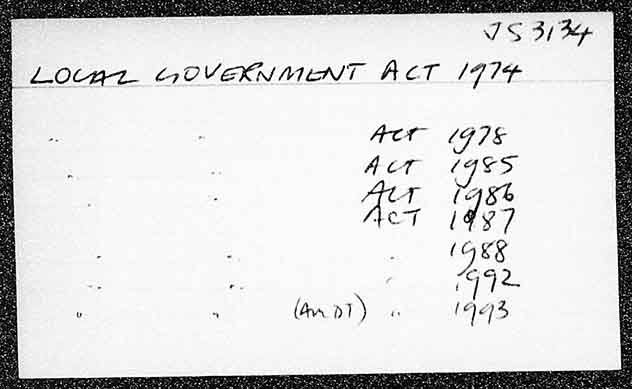 JS 3134
LOCAL GOVERNMENT ACT 1974
" " ACT 1978
" " ACT 1985
" " ACT 1986
ACT 1987
" " " 1988
" " " 1992
" " (AMDT) " 1993